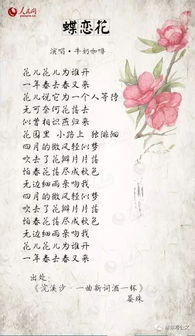 人民网
people.cn
蝶恋花
演唱·牛奶咖啡
花儿花儿为谁开
一年春去春又来
花儿说它为一个人等待
无可奈何花落去
似曾相识燕归来
花园里 小路上 独徘徊
四月的微风轻似梦
吹去了花瓣片片落
怕春花落尽成秋色
无边细雨亲吻我
四月的微风轻似梦
吹去了花瓣片片落
怕春花落尽成秋色
无边细雨亲吻我
花儿花儿为谁开
一年春去春又来
出处：
《浣溪沙·一曲新词酒一杯》
晏殊